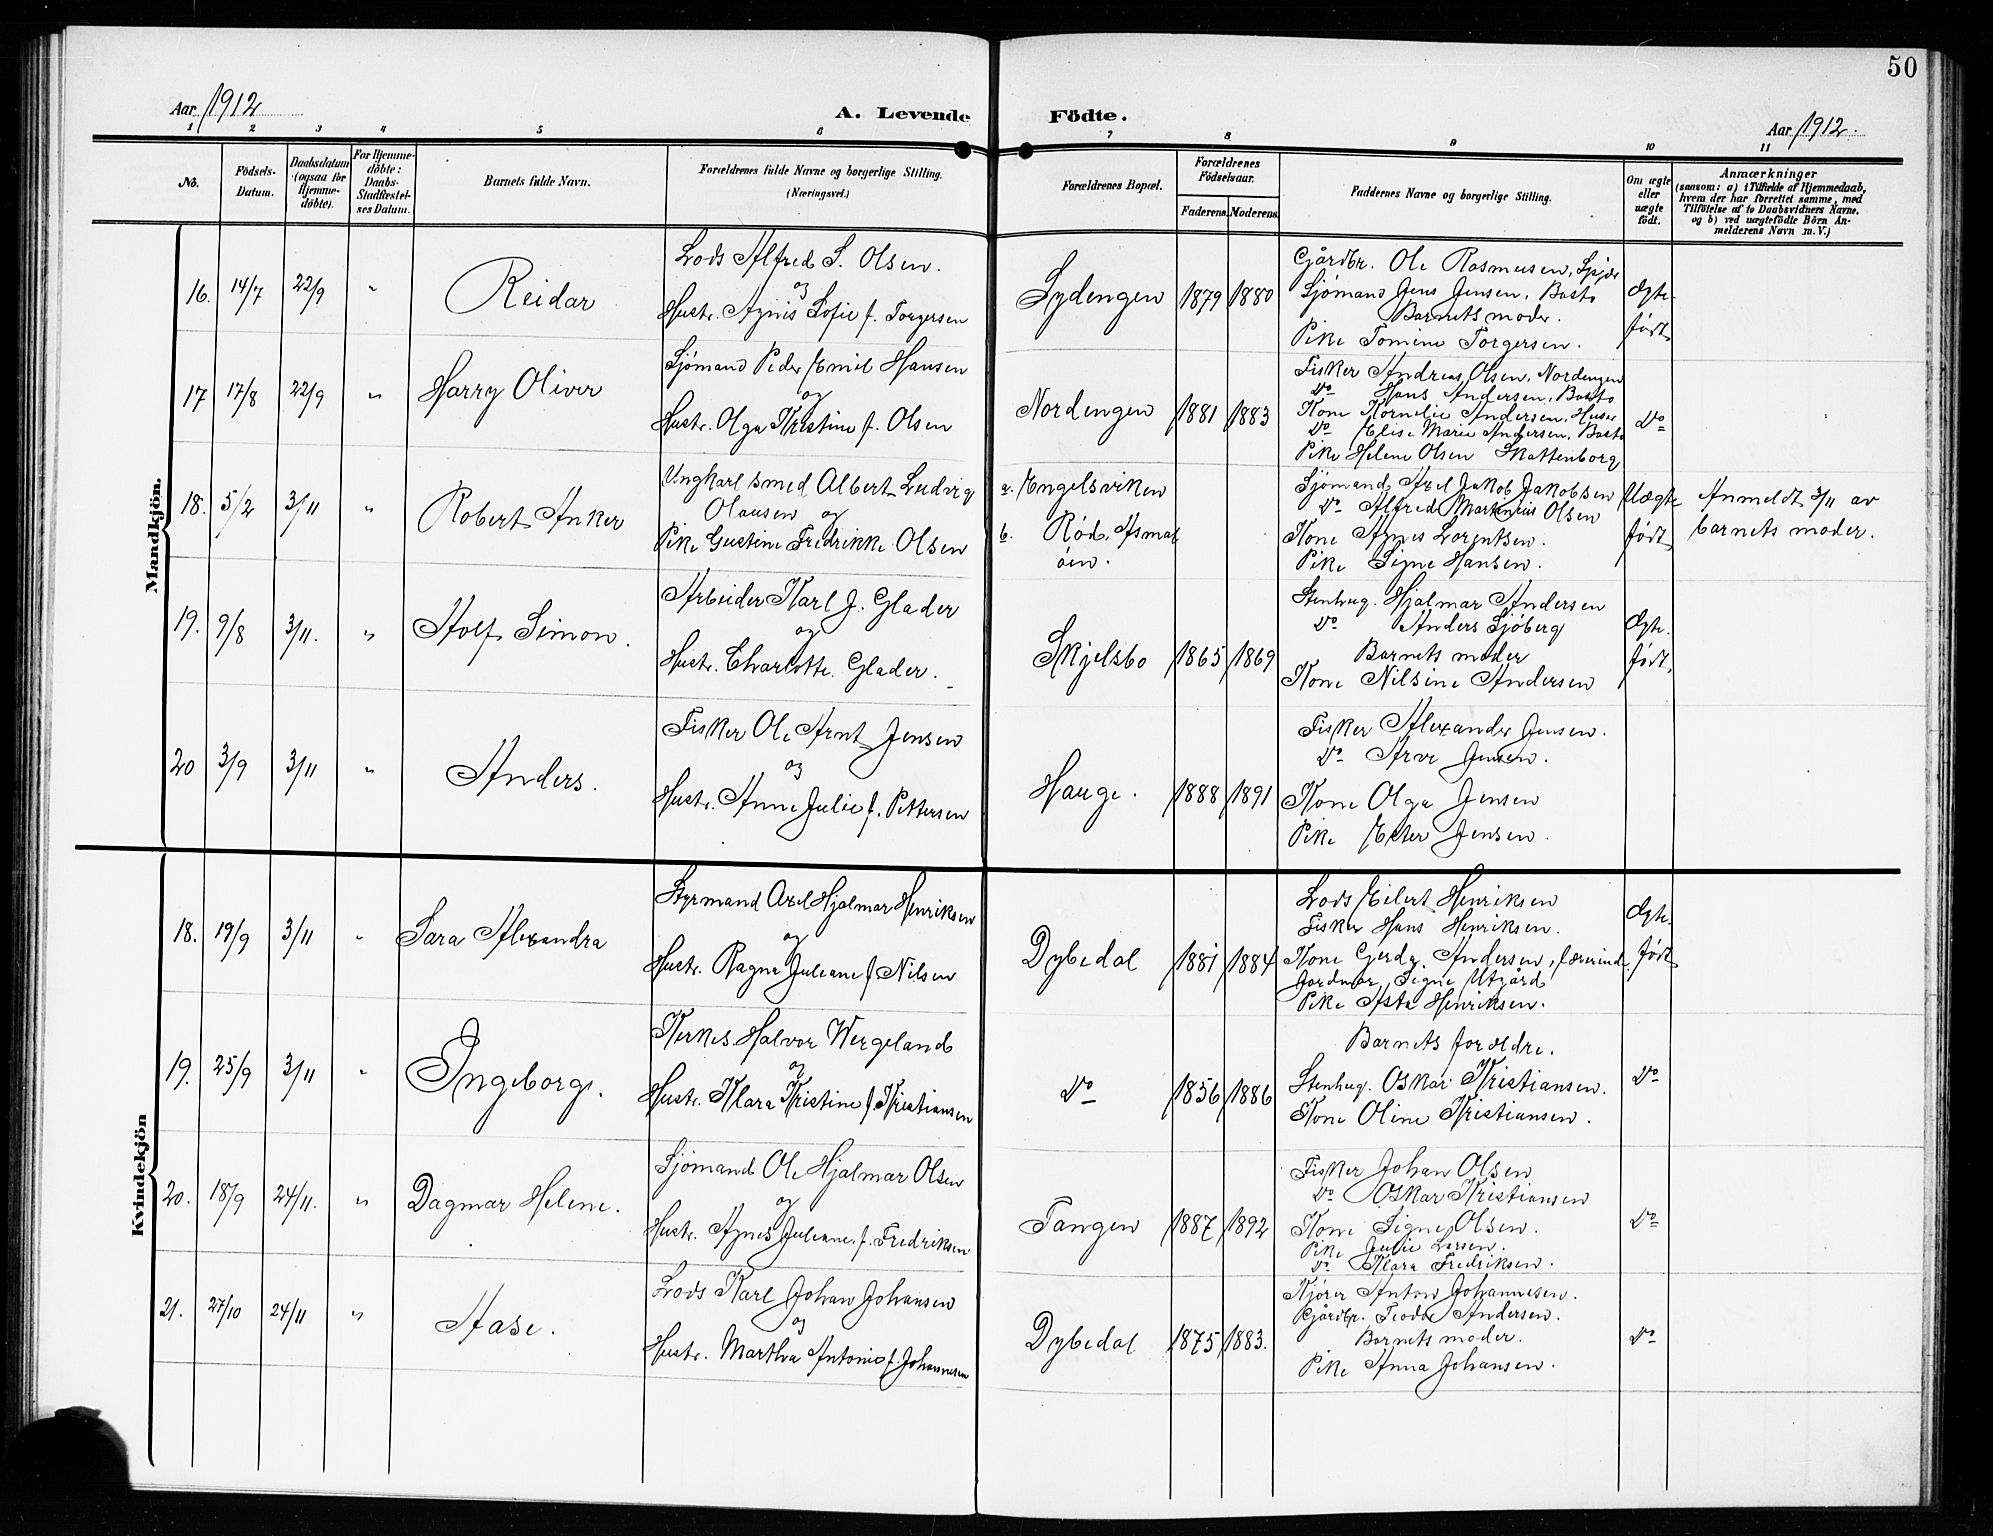 50
Aar 1912
A. Levende Födte.
Aar 1912.
1 2 3 4 5 6 7 8 9 10 11
No.
Födsels-
Datum.
Daabsdatum
(ogsaa for
Hjemme-
döbte).
For Hjemme-
döbte:
Daabs-
Stadfæstel-
ses Datum.
Barnets fulde Navn.
Forældrenes fulde Navne og borgerlige Stilling.
(Næringsvei.)
Forældrenes Bopæl.
Forældrenes
Födselsaar.
Faderens. Moderens.
Faddernes Navne og borgerlige Stilling.
Om ægte
eller
uægte
födt.
Anmærkninger
(saasom: a) i Tilfælde af Hjemmedaab,
hvem der har forrettet samme, med
Tilföielse af to Daabsvidners Navne.
og b) ved uægtefödte Börn An-
melderens Navn m. V.)
Mandkjön.
16. 14/7 22/9 " Reidar
Lods Alfred S. Olsen.
og
Hustr. Agnis Sofie f. Torgersen
Sydengen 1879 1880
Gårdbr. Ole Rasmusen,
Sjömand Jens Jensen, Basto
Barnets moder.
Pike Tomine Torgersen.
Ægte-
født
17 17/8 22/9 " Harry Oliver
Sjömand Peder Emil Hansen
og
Hustr. Olga Kristine f. Olsen
Nordengen 1881 1883
Fisker Andreas Olsen, Nordengen
Do Hans Andersen, Basto
Kone Kornelie Andersen, Huser
Do Elise Marie Andersen, Basto
Pike Helene Olsen Skattenborg
Do
18. 5/2 3/11 " Robert Anker
Ungkarl smed Albert Ludvig
Olausen og
Pike Gustine Fredrikke Olsen
a. Engelsviken
b. Röd, Asmal
öen.
Sjömand Axel Jakob Jakobsen
Do Alfred Martinius Olsen
Kone Agnes Lorentsen.
Pike Signe Hansen.
Uægte
født
Anmeldt 3/11 av
barnets moder.
19. 9/8 3/11. " Rolf Simon.
Arbeider Karl J. Glader
og
Hustr. Charlotte Glader.
Skjelsbo 1865 1869
Stenhug. Hjalmar Andersen
Do Anders Sjöberg
Barnets moder
Kone Nilsine Andersen
Ægte.
født
20 3/9 3/11 " Anders.
Fisker Ole Arnt Jensen
og
Hustr. Anne Julie f. Pettersen
Hauge. 1888 1891
Fisker Alexander Jensen.
Do Arve Jensen.
Kone Olga Jensen
Pike Ester Jensen.
Kvindekjön
18. 19/9 3/11 " Sara Alexandra
Styrmand Axel Hjalmar Henriksen
og
Hustr. Ragna Juliane f. Nilsen
Dybedal 1881 1884
Lods Eilert Henriksen
Fisker Hans Henriksen.
Kone Gerda Andersen, lærerind.
Jordmor Signe Utgård
Pike Asta Henriksen.
Ægte.
født
19. 25/9 3/11 " Ingeborg.
Kirkes. Halvor Wergeland
og
Hustr. Klara Kristine f. Kristiansen
Do 1856 1886
Barnets forældre.
Stenhug. Oskar Kristiansen.
Kone Oline Kristiansen.
Do
20. 18/9 24/11. " Dagmar Helene.
Sjömand Ole Hjalmar Olsen
og
Hustr. Agnes Juliane. f. Fredriksen
Tangen 1887 1892
Fisker Johan Olsen
Do Oskar Kristiansen
Kone Signe Olsen.
Pike Julie Larsen.
Do Klara Fredriksen.
Do
21. 27/10 24/11 " Aase.
Lods Karl Johan Johansen
og
Hustr. Martha Antonie f. Johannesen
Dybedal 1875 1883.
Kjörer Anton Johannesen.
Gårdbr. Teodor Andersen.
Barnets moder.
Pike Anna Johansen.
Do